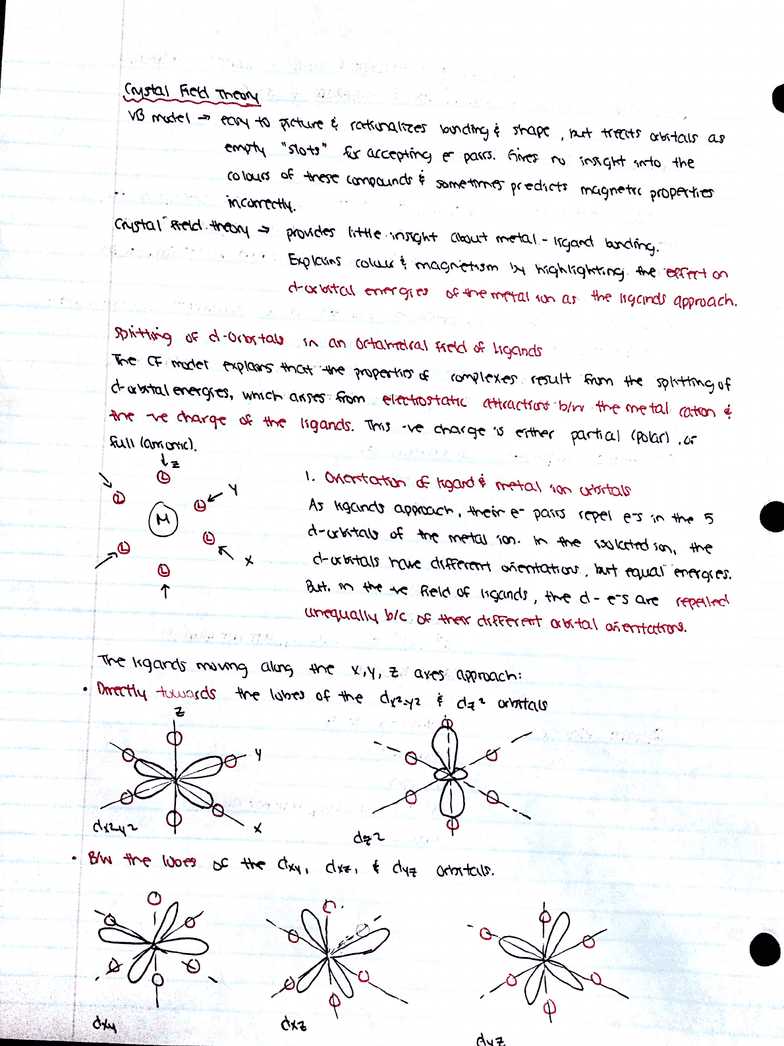 Crystal Field Theory
VB model → easy to picture & rationalizes bonding & shape, but treats orbitals as
empty "slots" for accepting e⁻ pairs. Gives no insight into the
colours of these compounds & sometimes predicts magnetic properties
incorrectly.
Crystal field theory → provides little insight about metal-ligand bonding.
Explains colour & magnetism by highlighting the effect on
d-orbital energies of the metal ion as the ligands approach.
Splitting of d-Orbitals in an Octahedral Field of Ligands
The CF model explains that the properties of complexes result from the splitting of
d-orbital energies, which arises from electrostatic attractions b/w the metal cation &
the -ve charge of the ligands. This -ve charge is either partial (polar), or
full (anionic).
1. Orientation of ligand & metal ion orbitals
As ligands approach, their e⁻ pairs repel e⁻s in the 5
d-orbitals of the metal ion. In the isolated ion, the
d-orbitals have different orientations, but equal energies.
But, in the -ve field of ligands, the d-e⁻s are repelled
unequally b/c of their different orbital orientations.
Z
L
L
L
Y
M
L
L
X
L
The ligands moving along the x, y, z axes approach:
• Directly towards the lobes of the dx²-y² & dz² orbitals
Z
Y
X
dx²-y²
dz²
• B/w the lobes of the dxy, dxz, & dyz orbitals.
dxy
dxz
dyz